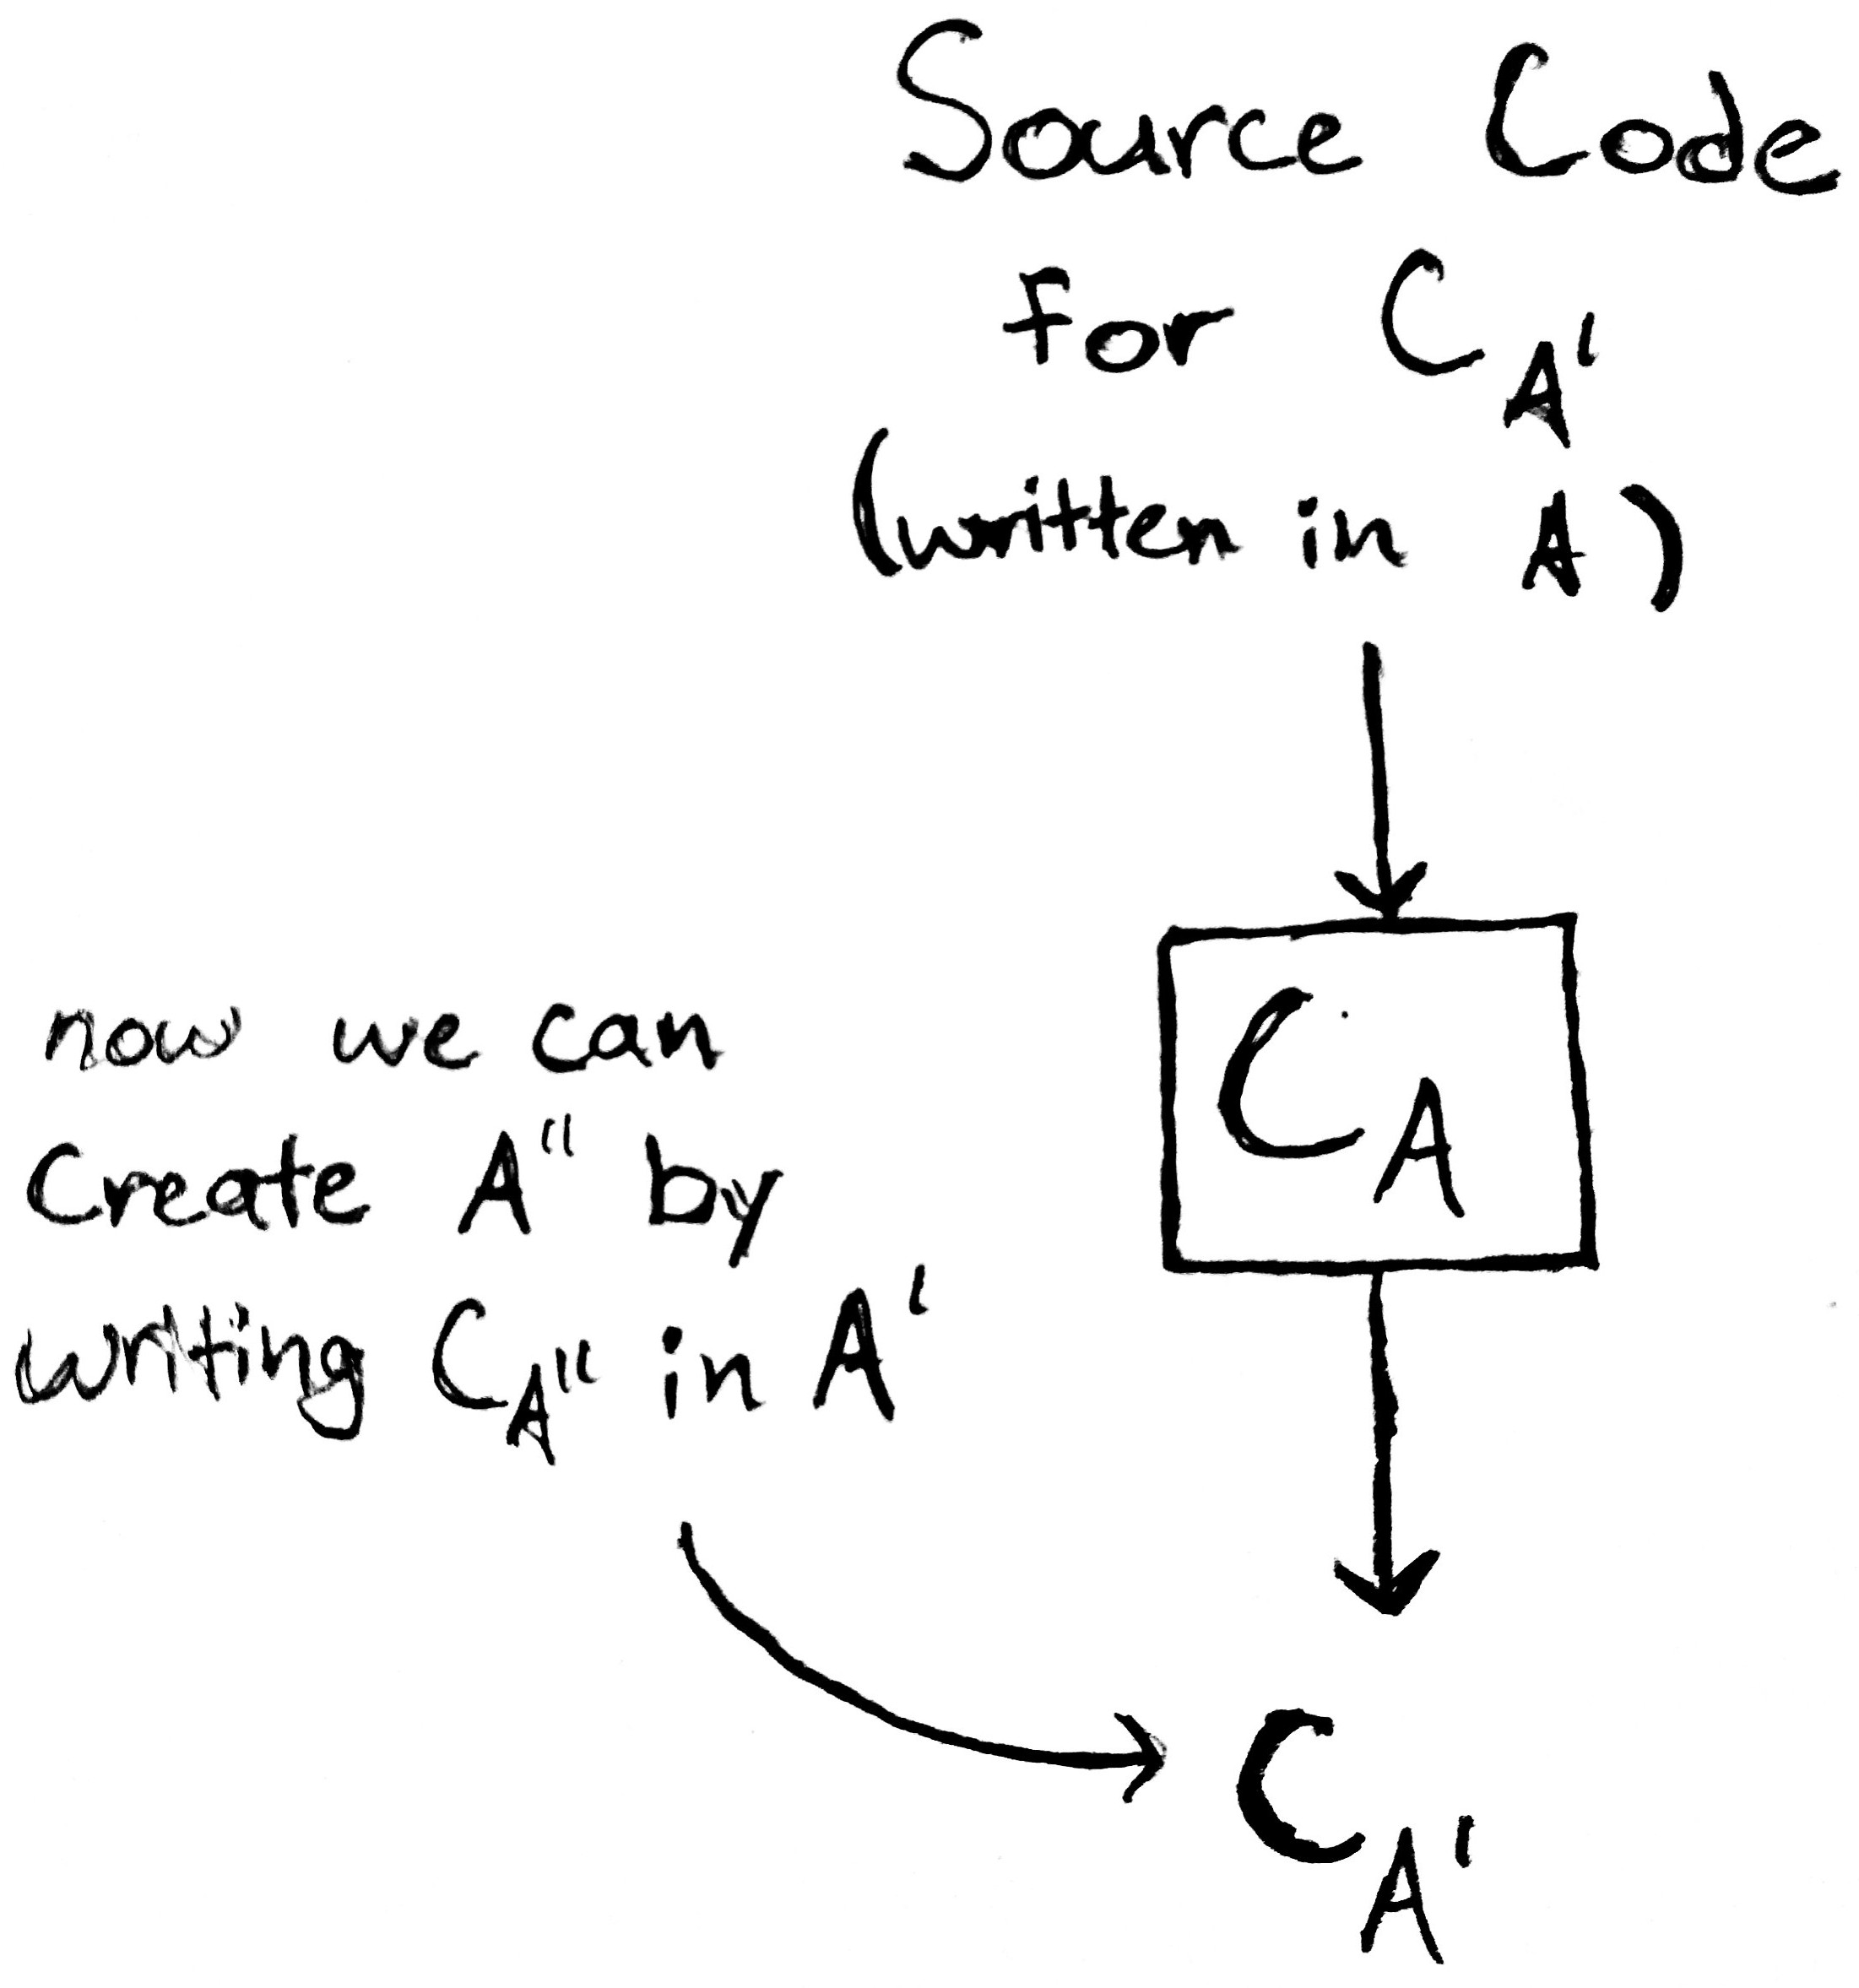 Source Code
for C_A'
(written in A)
C_A
now we can
Create A" by
writing C_A" in A'
C_A'